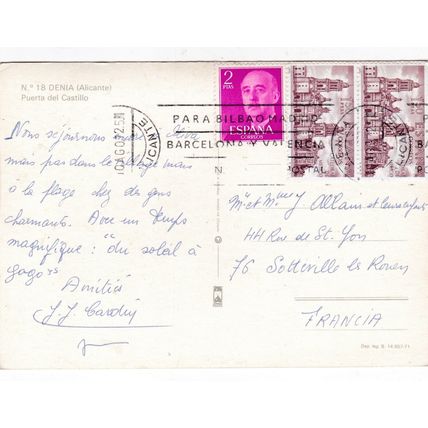 N.º 18 DENIA (Alicante)
Puerta del Castillo
2
PTAS
ESPAÑA
CORREOS
ALICANTE
PARA BILBAO MADRID
BARCELONA Y VALENCIA
POSTAL
Nous séjournons
mais pas dans le mais
à la plage chez des gens
charmants. Avec un temps
magnifique : "du soleil à
gogo"
Amitiés
J. J.
M. et Mme J. Allain et leurs enfants
44 Rue de St. Yon
76 Sotteville les Rouen
FRANCIA
Dep. leg. B.